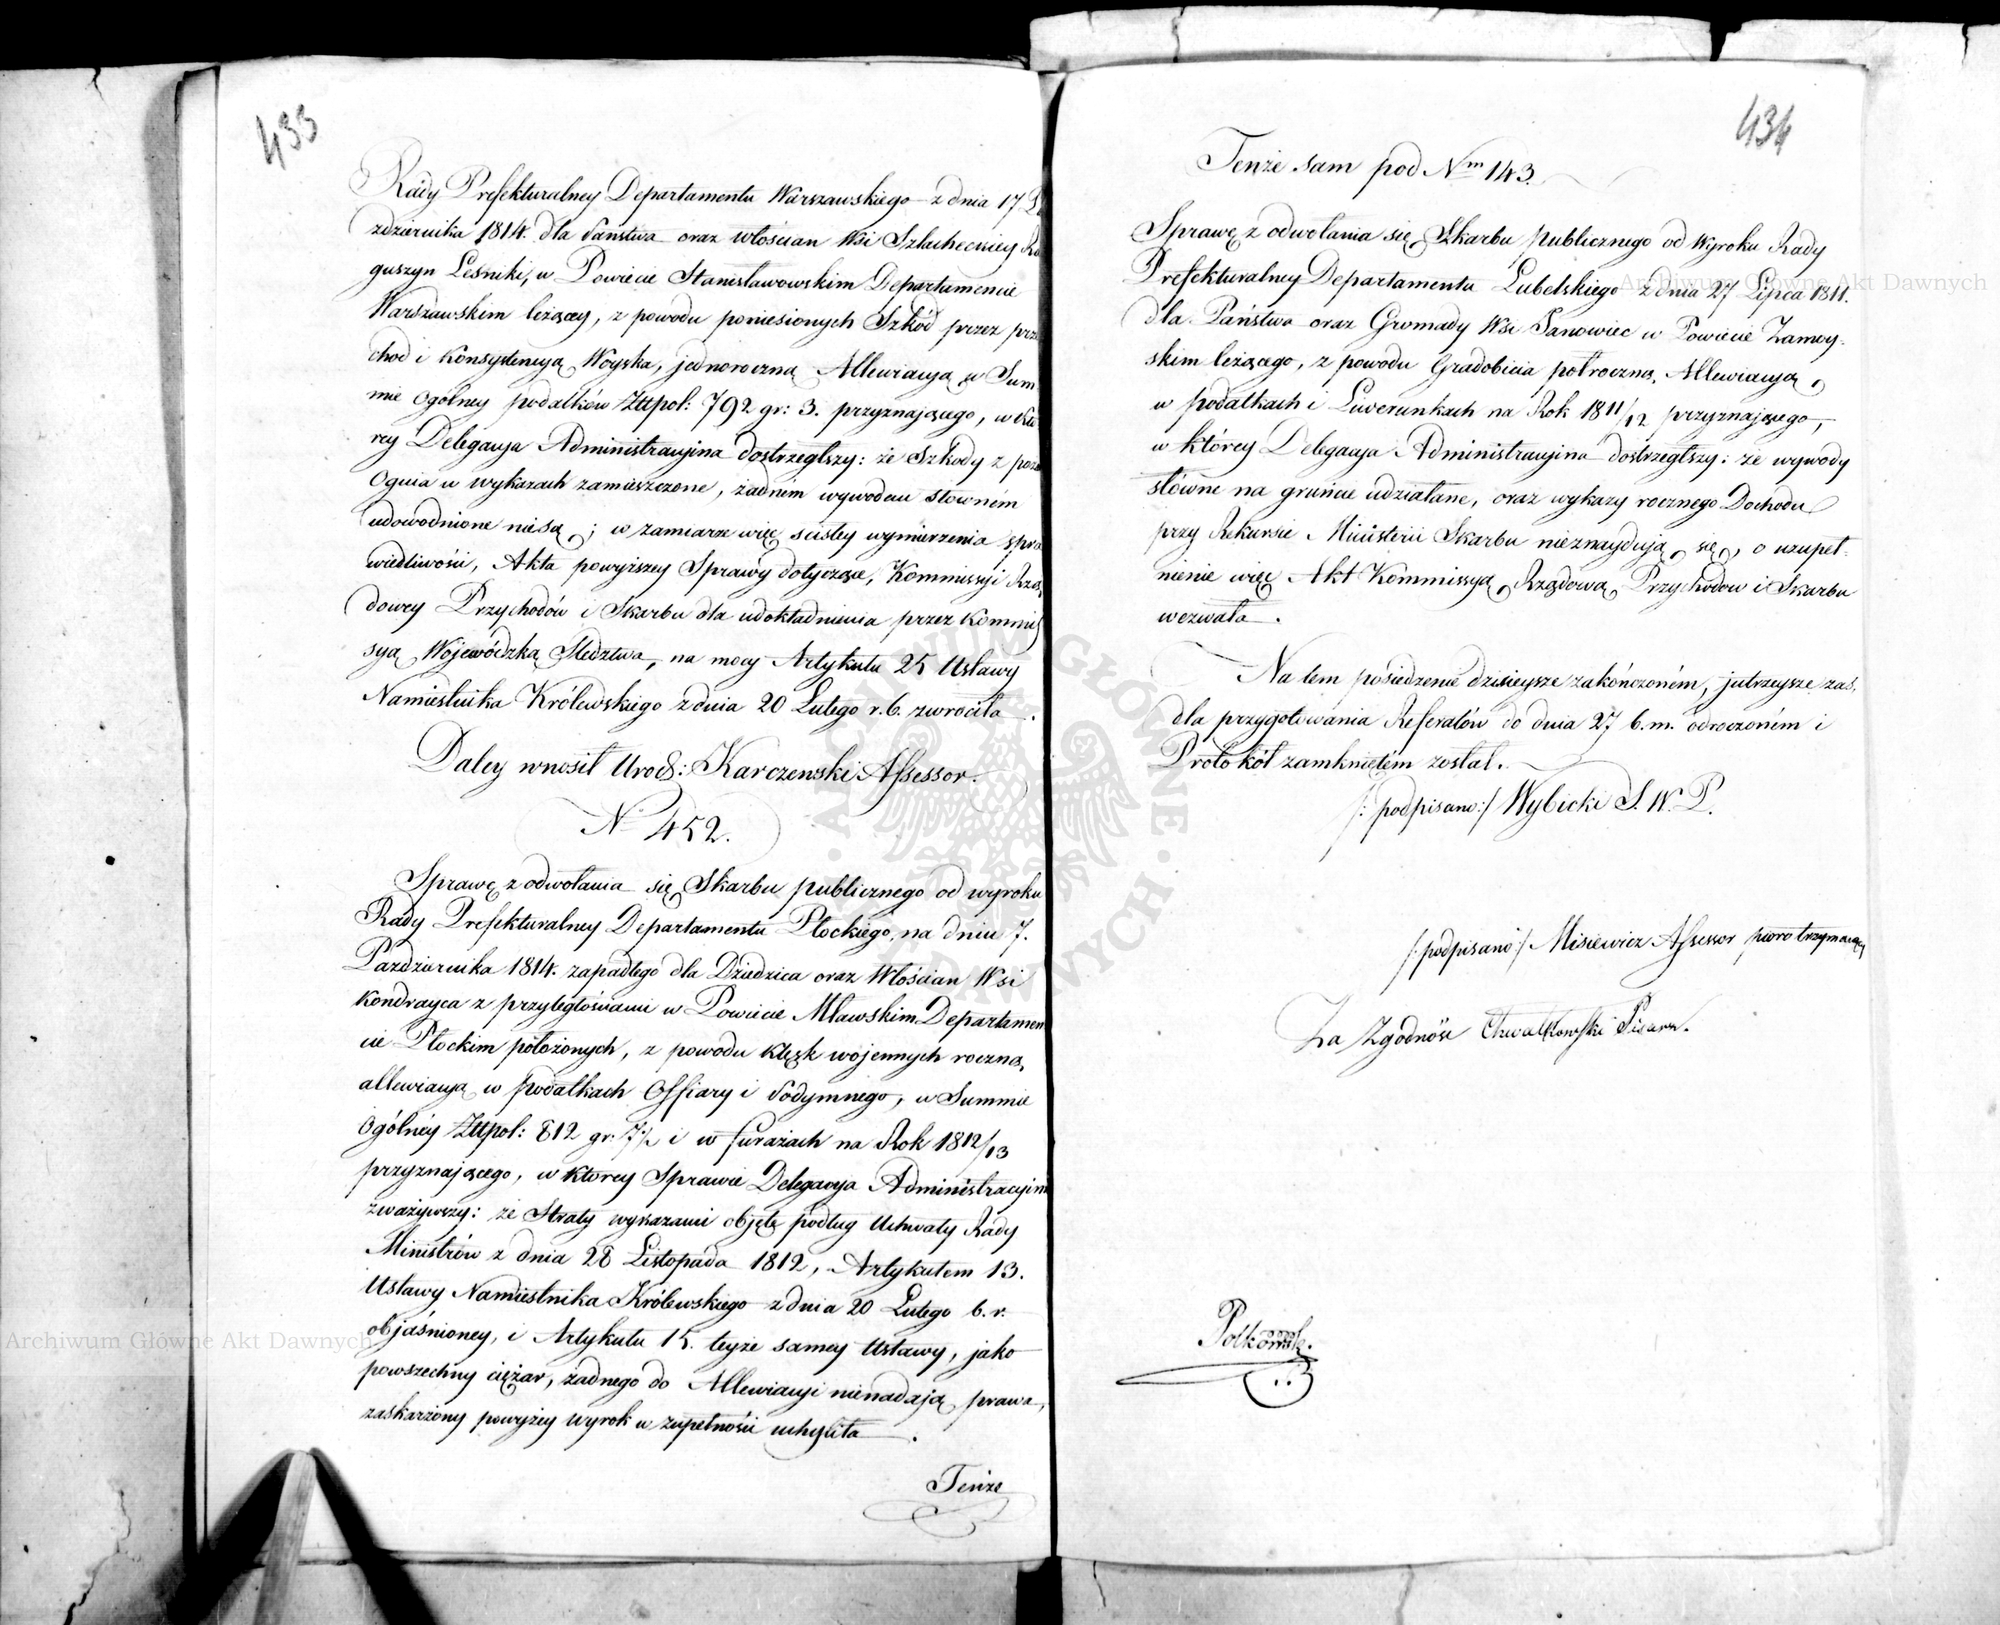 433
Rady Prefekturalney Departamentu Warszawskiego z dnia 17
zdziernika 1814. dla Państwa oraz włościan Wsi Szlacheckiey Ro
guszyn Leśniki, w Powiecie Stanisławowskim Departamencie
Warszawskim leżącey, z powodu poniesionych Szkód przez prze
chod i Konsystencyą Woyska, jednoroczną Allewiacyą w Sum
mie ogólney podatków Złtpol: 792 gr: 3. przyznającego, w Któ
rey Delegacya Administracyina dostrzegłszy: że Szkody z
Ognia w wykazach zamieszczone, żadném wywodem słowném
udowodnione niesą; w zamiarze więc scisłey wymierzenia spra
wiedliwości, Akta powyższey Sprawy dotyczące, Kommissyi Rzą
dowey Przychodów i Skarbu dla udokładnienia przez Kommis
syą Wojewódzką Sledztwa, na mocy Artykułu 25 Ustawy
Namiestnika Królewskiego z dnia 20 Lutego r. b. zwróciła.
Daley wnosił Urodz: Karczewski Assessor.
No 452.
Sprawę z odwołania się Skarbu publicznego od wyroku
Rady Prefekturalney Departamentu Płockiego, na dniu 7.
Pazdziernika 1814. zapadłego dla Dziedzica oraz Włościan Wsi
Kondrayca z przyległościami w Powiecie Mławskim Departamen
cie Płockim położonych, z powodu klęsk wojennych roczną
allewiacyą w podatkach Offiary i Podymnego, w Summie
Ogólnéy Złtpol: 812 gr. 7½ i w furażach na Rok 1812/13
przyznającego, w ktorey Sprawie Delegacya Administracyina
zważywszy: że Straty wykazami objęte podług Uchwały Rady
Ministrów z dnia 28 Listopada 1812, Artykułem 13.
Ustawy Namiestnika Królewskiego z dnia 20 Lutego b. r.
objaśnioney, i Artykułu 15. teyże samey Ustawy, jako
powszechny ciężar, żadnego do Allewiacyi nienadają prawa,
zaskarżony powyżey wyrok w zupełności uchyliła.
Tenże
434
Tenże sam pod Nm 143.
Sprawę z odwołania się Skarbu publicznego od Wyroku Rady
Prefekturalney Departamentu Lubelskiego z dnia 27 Lipca 1811.
dla Państwa oraz Gromady Wsi Janowiec w Powiecie Zamoy-
skim leżącego, z powodu Gradobicia półroczną Allewiacyą
w podatkach i Liwerunkach na Rok 1811/12 przyznającego,
w którey Delegacya Administracyina dostrzegłszy: że wywody
słówne na gruncie udziałane, oraz wykazy rocznego Dochodu
przy Rekursie Ministerii Skarbu nieznaydują się, o uzupeł-
nienie więc Akt Kommissyą Rządową Przychodow i Skarbu
wezwała.
Na tem posiedzenie dzisieysze zakończoném, jutrzeysze zaś
dla przygotowania Referatów do dnia 27 b. m. odroczoném i
Protokół zamkniętém został.
/: podpisano :/ Wybicki S. W. P.
/: podpisano :/ Misiewicz Assessor pioro trzymaiący
Za Zgodność Chwalkowski Pisarz.
Polkowski.
Archiwum Główne Akt Dawnych
Archiwum Główne Akt Dawnych
ARCHIWUM GŁÓWNE AKT DAWNYCH